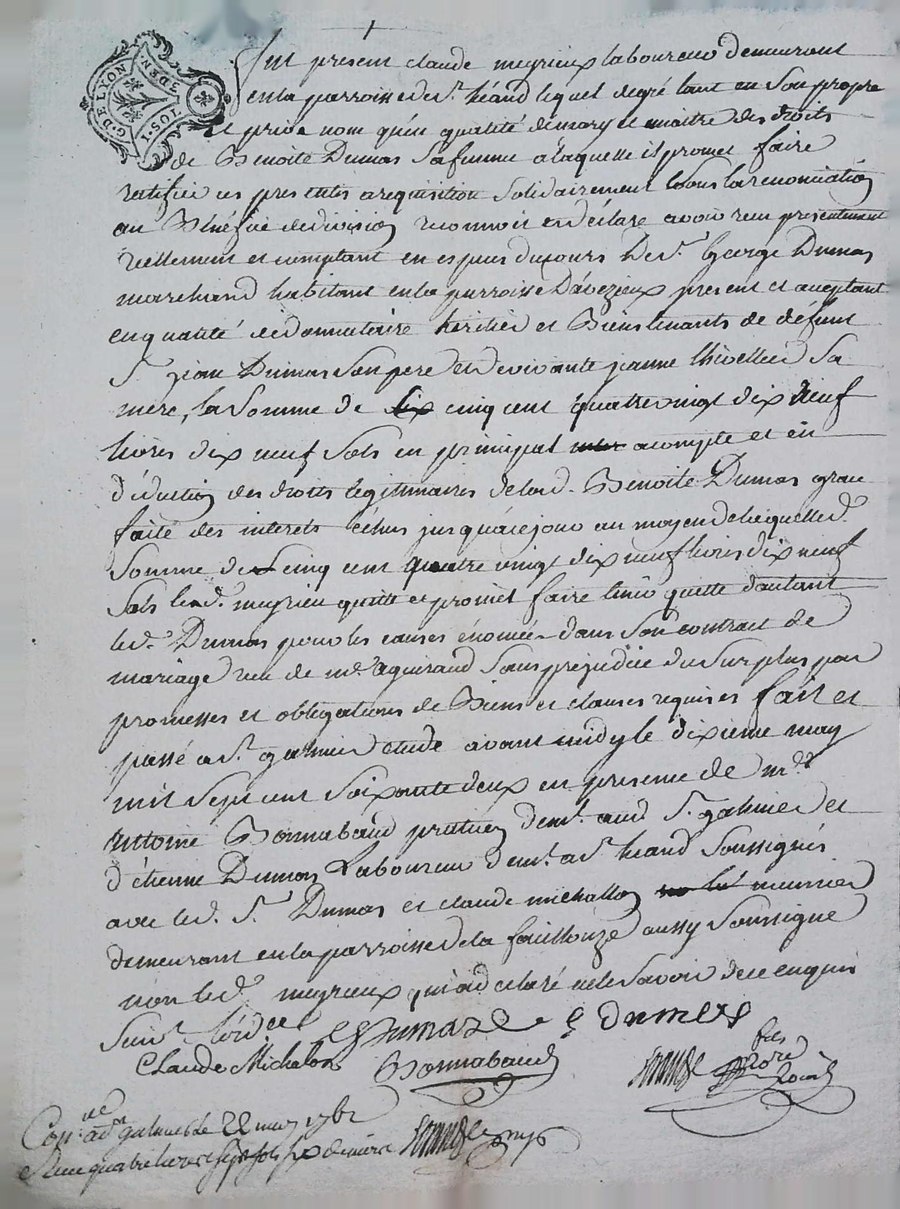 G. DE LYON
1. SOL 3 DEN.
fut present claude meyrieux laboureur demeurant
en la parroisse de st. héand lequel degré tant en son propre
et privé nom qu'en qualité de mary et maitre des droits
de Benoite Dumas sa femme a laquelle il promet faire
ratifier ces presentes a requisition solidairement sous la renonciation
au Bénéfice de division reconnoit et déclare avoir reçu presentement
réellement et comptant en especes du cours De sr. George Dumas
marchand habitant en la parroisse D'avezieux present et aceptant
en qualité de donnataire heritier et Bienstenants de défunt
sr. jean Dumas son pere et de vivante jeanne thivellier sa
mere, la somme de cinq cent quatre vingt dix neuf
livres dix neuf sols en principal acompte et en
déduction des droits legitimaires de lad. Benoite Dumas
faite des interets échus jusqu'à ce jour au moyen de laquelle d.
somme de cinq cent quatre vingt dix neuf livres dix neuf
sols led. meyrieu quitte et promet faire tenir quitte d'autant
led. Dumas pour les causes énoncées dans son contract de
mariage reçu de me. aguiraud sans prejudice du surplus par
promesses et obligations de Biens et clauses requises fait et
passé a st. galmier etude avant midy le dixieme may
mil sept cent soixante deux en presence de
antoine Bonnabaud praticien demt. aud. st. galmier et
d'étienne Dumas Laboureur demt. a st. heand soussignés
avec led. sr. Dumas et claude michallon meunier
demeurant en la parroisse de la fouillouze aussy soussigné
non led. meyrieux qui a declaré ne le savoir de ce enquis
suivt. l'ord.ce
Claude Michalon Bonnabaud
Con.lé a st. galmier le 22 may 1762
Reçu quatre livres sept sols